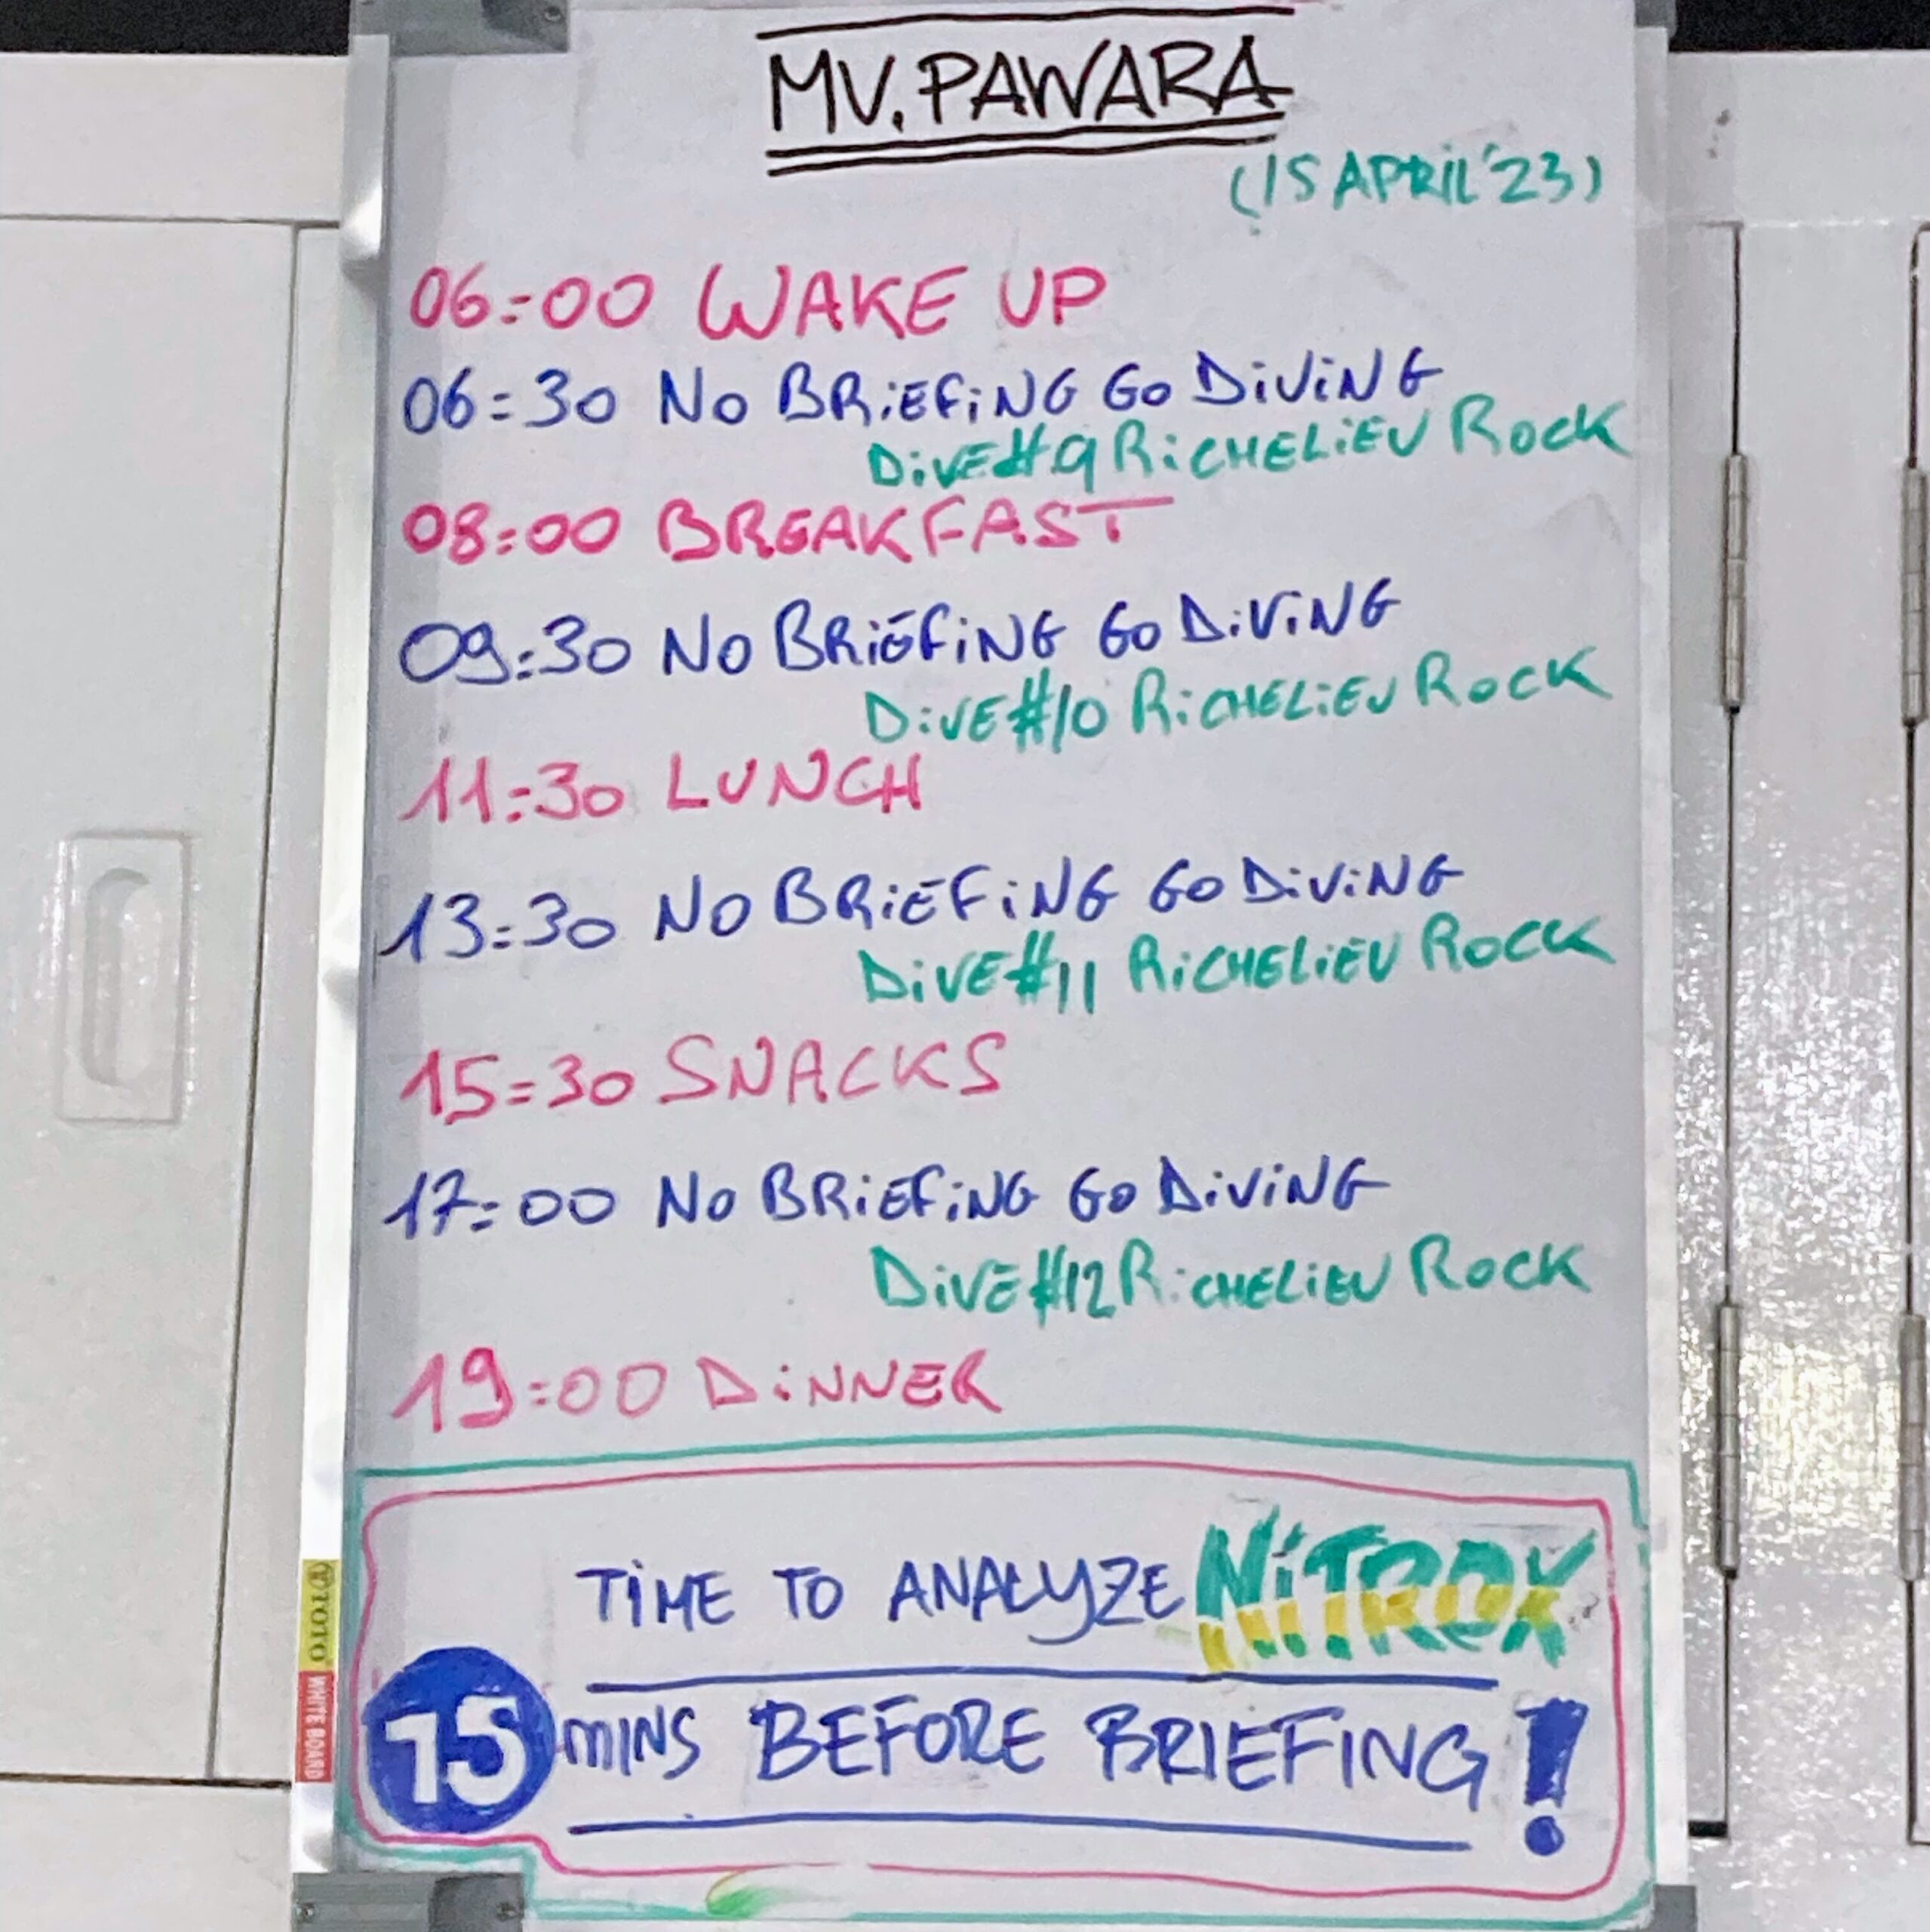 MV. PAWARA
(15 APRIL '23)
06:00 WAKE UP
06:30 NO BRIEFING GO DIVING
DIVE#9 RICHELIEU ROCK
08:00 BREAKFAST
09:30 NO BRIEFING GO DIVING
DIVE#10 RICHELIEU ROCK
11:30 LUNCH
13:30 NO BRIEFING GO DIVING
DIVE#11 RICHELIEU ROCK
15:30 SNACKS
17:00 NO BRIEFING GO DIVING
DIVE#12 RICHELIEU ROCK
19:00 DINNER
TIME TO ANALYZE NITROX
15 MINS BEFORE BRIEFING!
TOTO WHITE BOARD